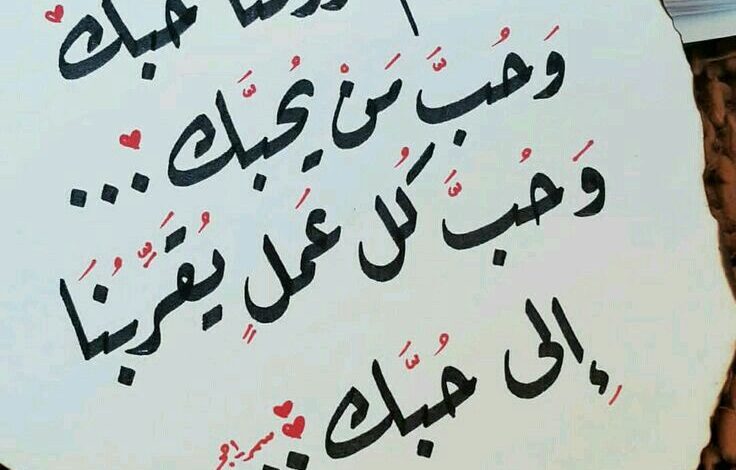 حبك
وَحُبَّ مَنْ يُحبَّك...
وَحُبَّ كُل عَمَلٍ يُقَرِّبُنَا
إِلى حُبَّك..